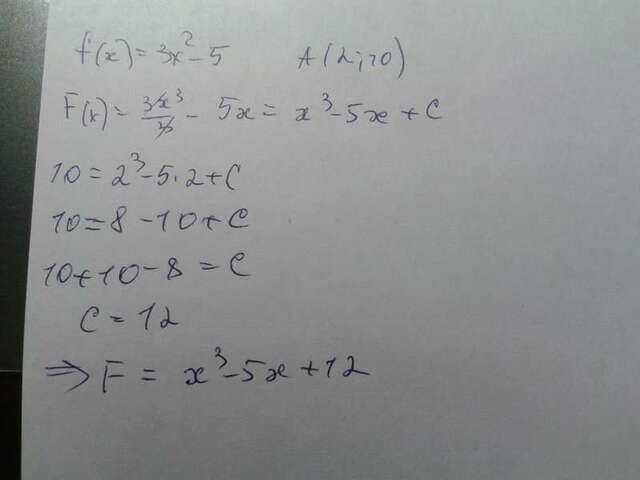 f(x) = 3x² - 5 A(2; 10)
F(x) = 3x³/3 - 5x = x³ - 5x + C
10 = 2³ - 5·2 + C
10 = 8 - 10 + C
10 + 10 - 8 = C
C = 12
⇒ F = x³ - 5x + 12